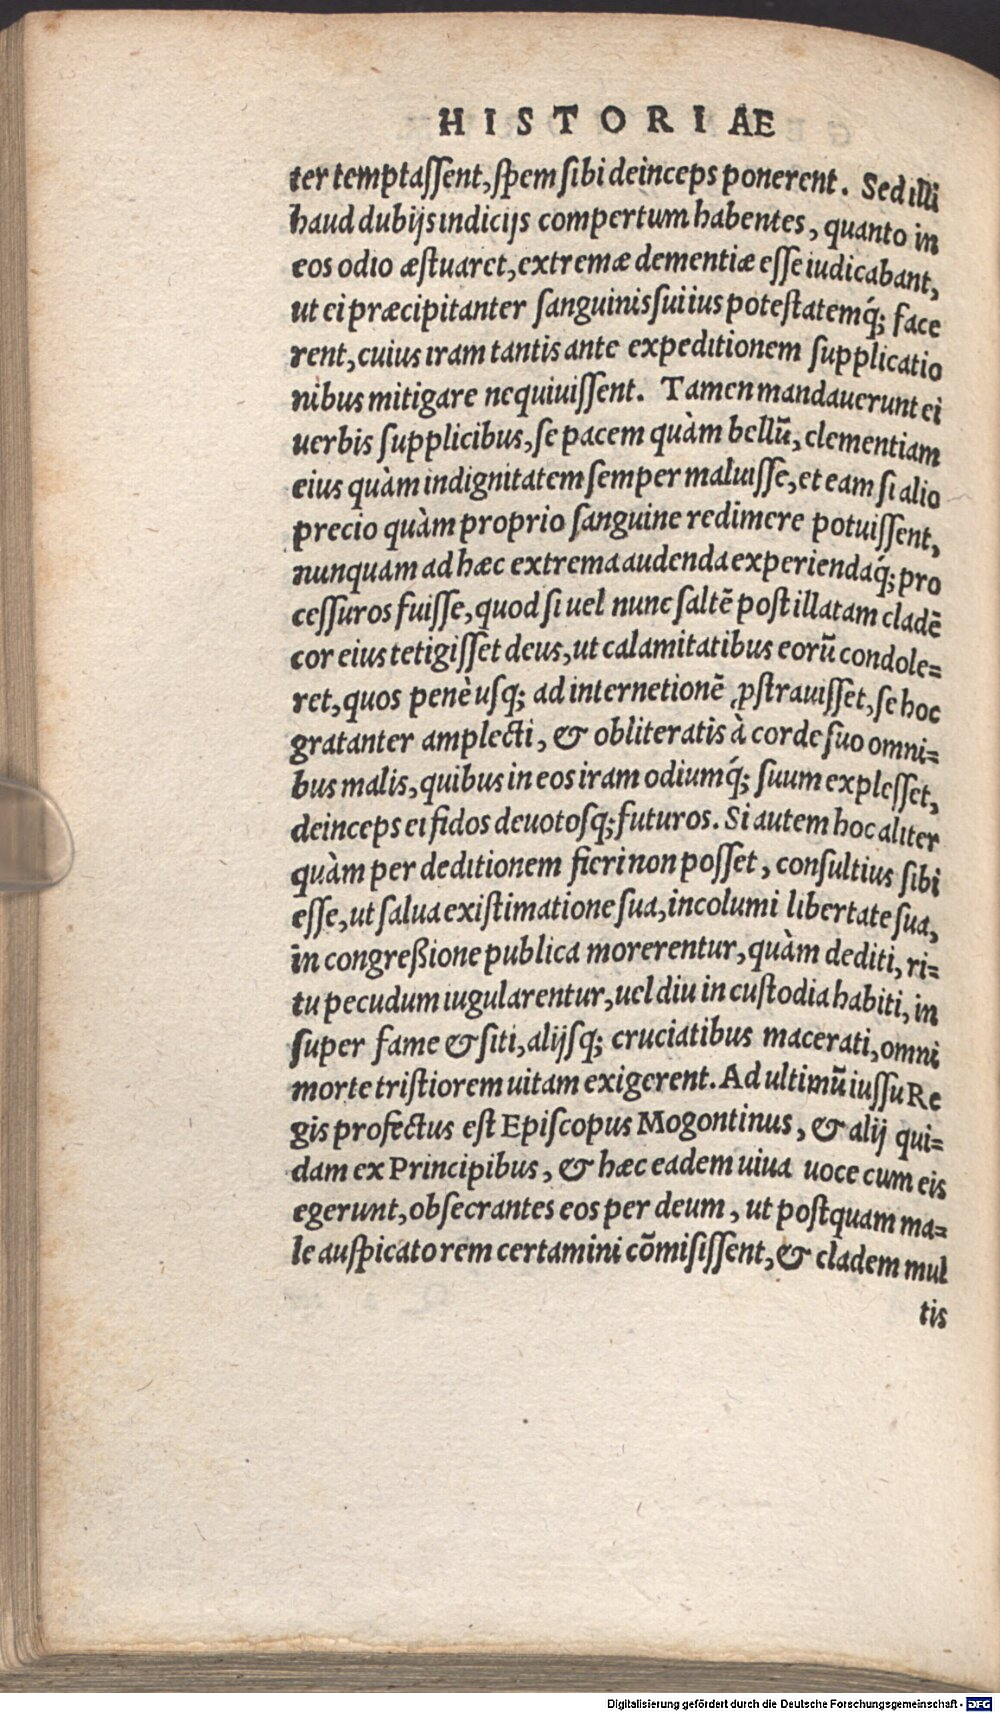 HISTORIAE
ter temptaſſent, ſpem ſibi deinceps ponerent. Sed illi
haud dubijs indicijs compertum habentes, quanto in
eos odio æſtuaret, extremæ dementiæ eſſe iudicabant,
ut ei præcipitanter ſanguinis ſui ius poteſtatemq́; face
rent, cuius iram tantis ante expeditionem ſupplicatio
nibus mitigare nequiuiſſent. Tamen mandauerunt ei
uerbis ſupplicibus, ſe pacem quàm bellũ, clementiam
eius quàm indignitatem ſemper maluiſſe, et eam ſi alio
precio quàm proprio ſanguine redimere potuiſſent,
nunquam ad hæc extrema audenda experiendaq́; pro
ceſſuros fuiſſe, quod ſi uel nunc ſaltẽ poſt illatam cladẽ
cor eius tetigiſſet deus, ut calamitatibus eorũ condole=
ret, quos penè uſq; ad internetionẽ ꝓſtrauiſſet, ſe hoc
gratanter amplecti, & obliteratis à corde ſuo omni=
bus malis, quibus in eos iram odiumq́; ſuum expleſſet,
deinceps ei fidos deuotoſq; futuros. Si autem hoc aliter
quàm per deditionem fieri non poſſet, conſultius ſibi
eſſe, ut ſalua exiſtimatione ſua, incolumi libertate ſua,
in congreßione publica morerentur, quàm dediti, ri=
tu pecudum iugularentur, uel diu in cuſtodia habiti, in
ſuper fame & ſiti, alijſq; cruciatibus macerati, omni
morte triſtiorem uitam exigerent. Ad ultimũ iuſſu Re
gis profectus eſt Epiſcopus Mogontinus, & alij qui=
dam ex Principibus, & hæc eadem uiua uoce cum eis
egerunt, obſecrantes eos per deum, ut poſtquam ma=
le auſpicato rem certamini cõmiſiſſent, & cladem mul
tis
Digitalisierung gefördert durch die Deutsche Forschungsgemeinschaft - DFG